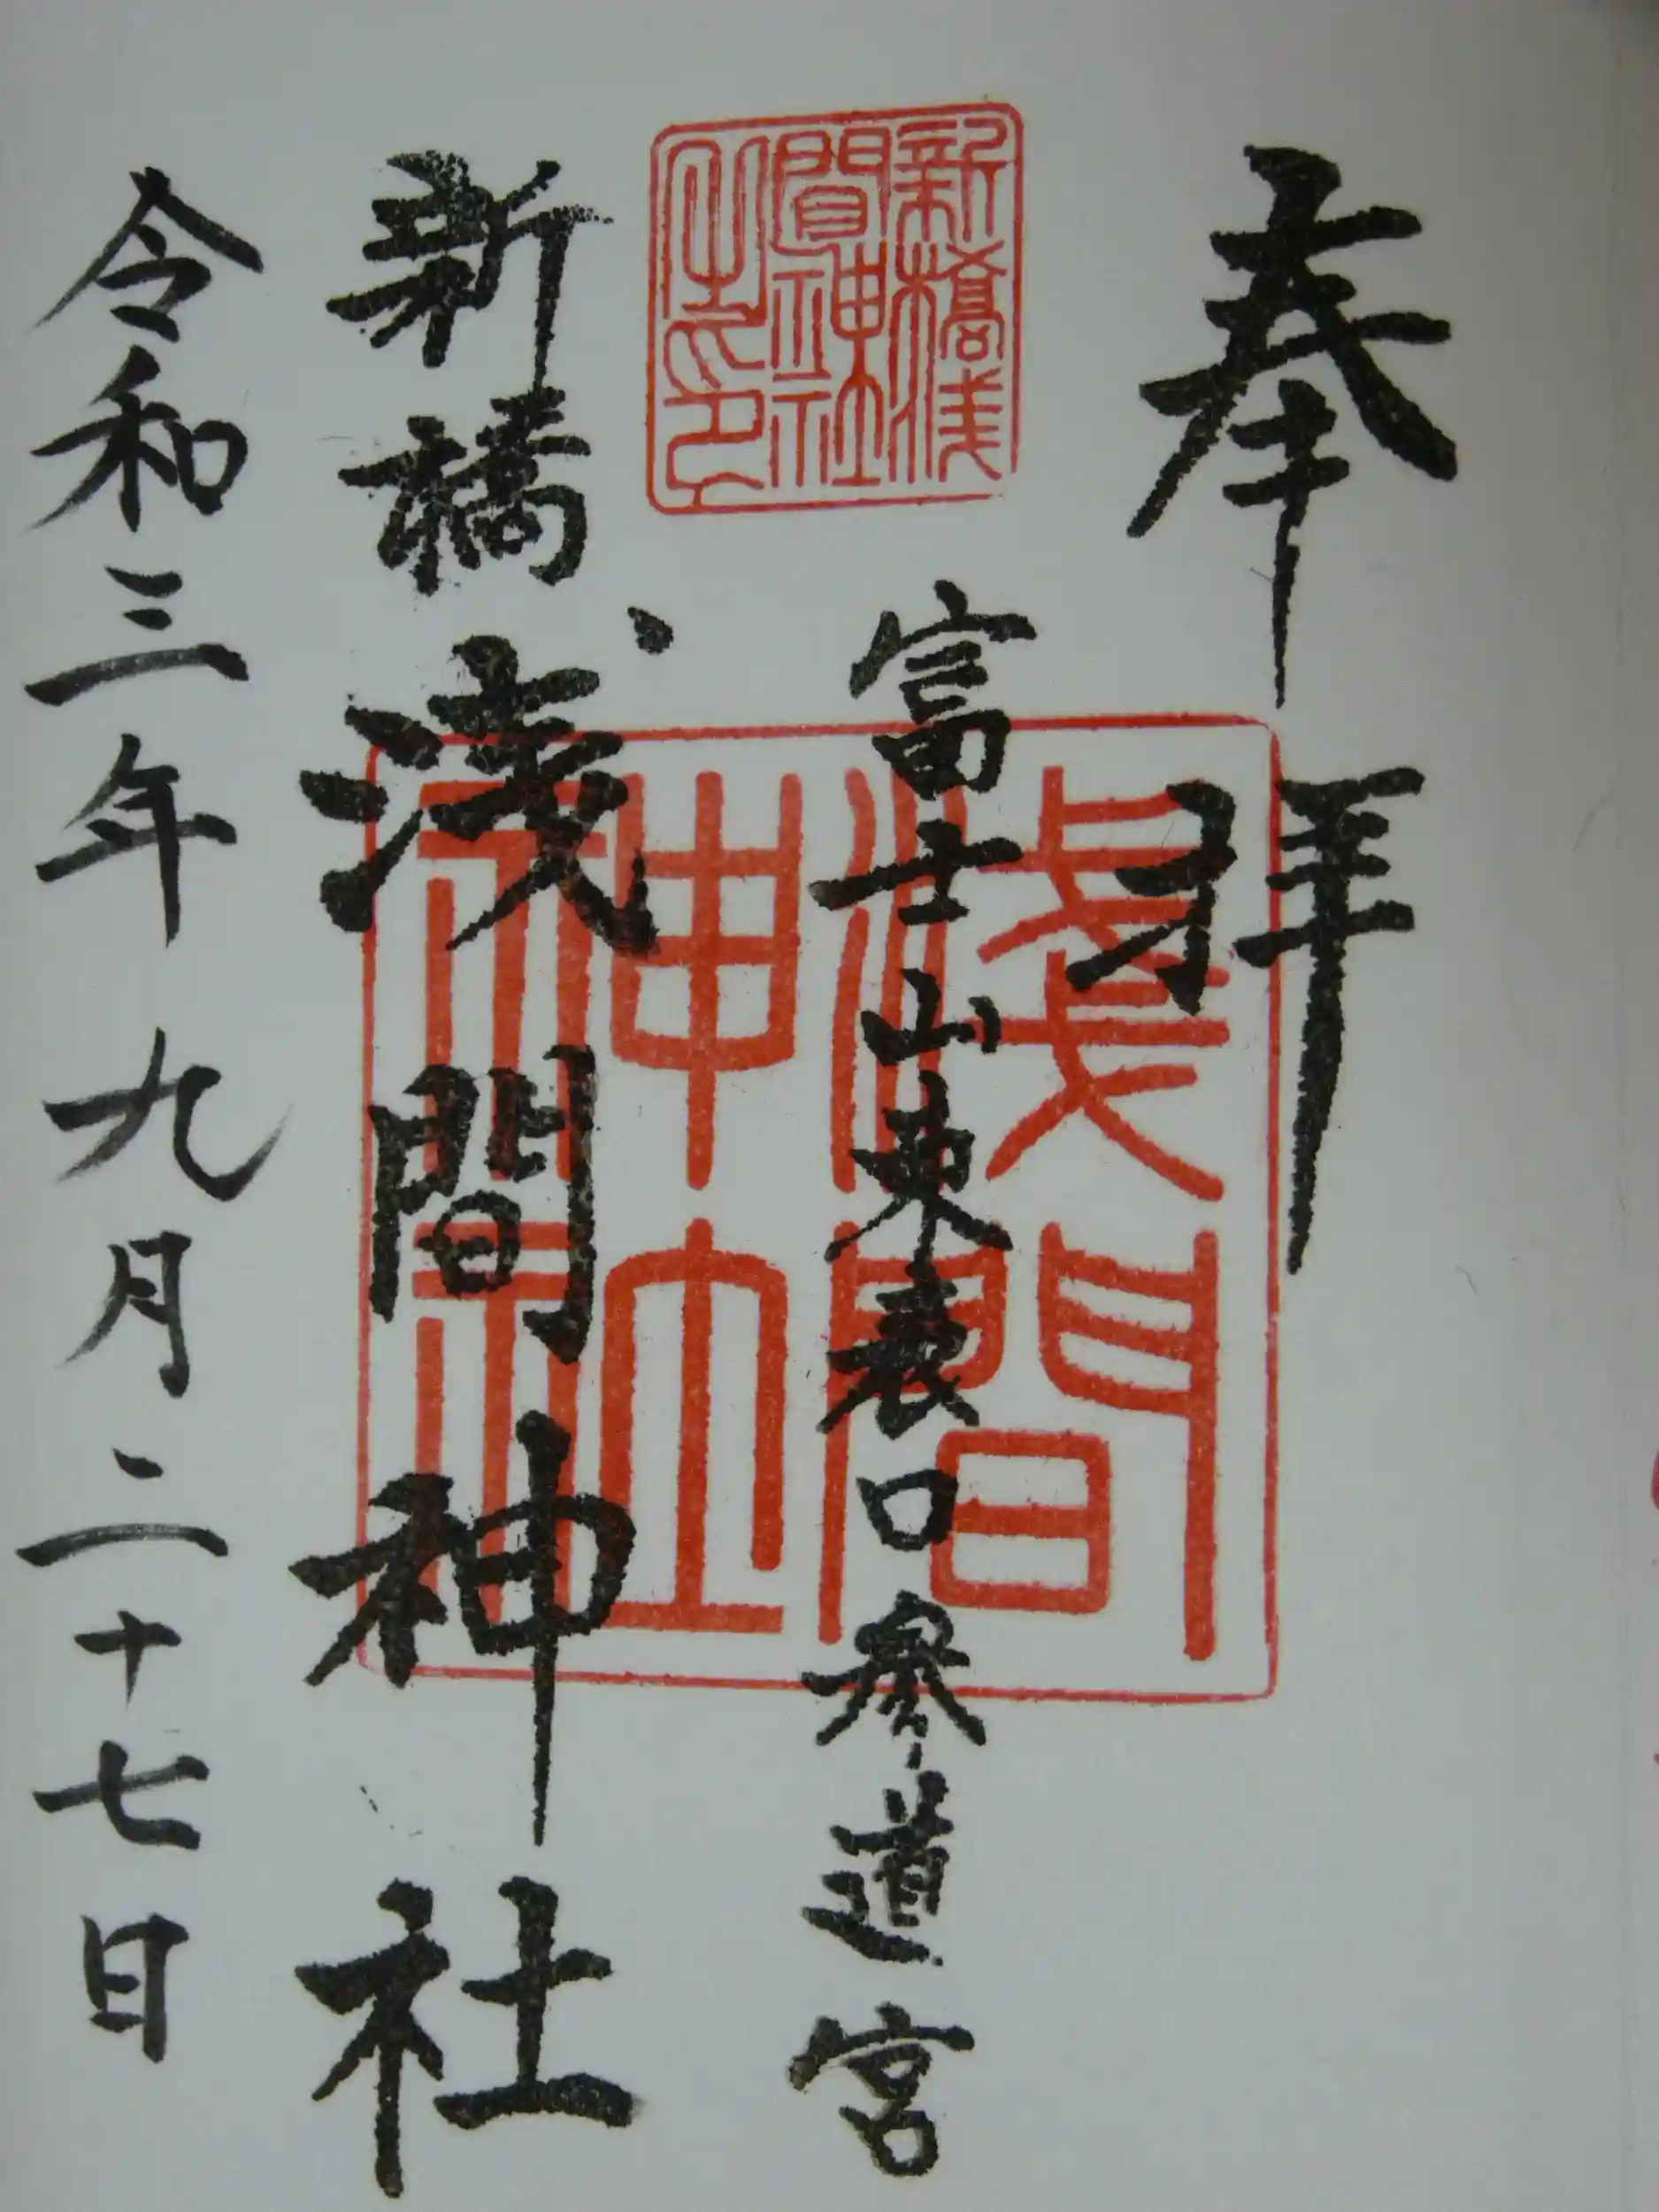 奉拝
富士山東表口参道宮
新橋浅間神社
令和三年九月二十七日
新橋浅間神社之印
淺間神社